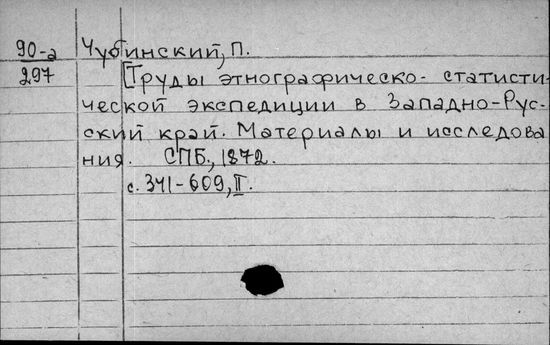 90-а Чубинский, П.
297 [Труды этнографическо- статисти-
ческой экспедиции в Западно-Рус-
ский край. Материалы и исследова
ния. СПБ., 1872.
с. 341-609, II.